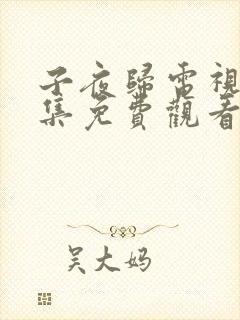 子夜歸電視
集免費觀看
吴大妈